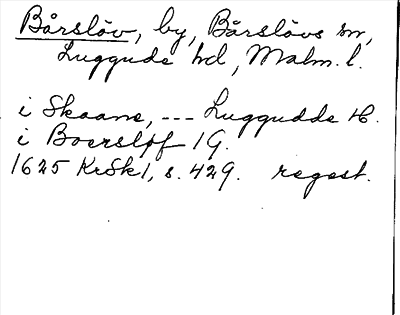 Bårslöv, by, Bårslövs sn,
Luggude hd, Malm. l.
i Skaane, --- Luggudde H.
i Boersløf 1 G.
1625 KrSk 1, s. 429. regest.